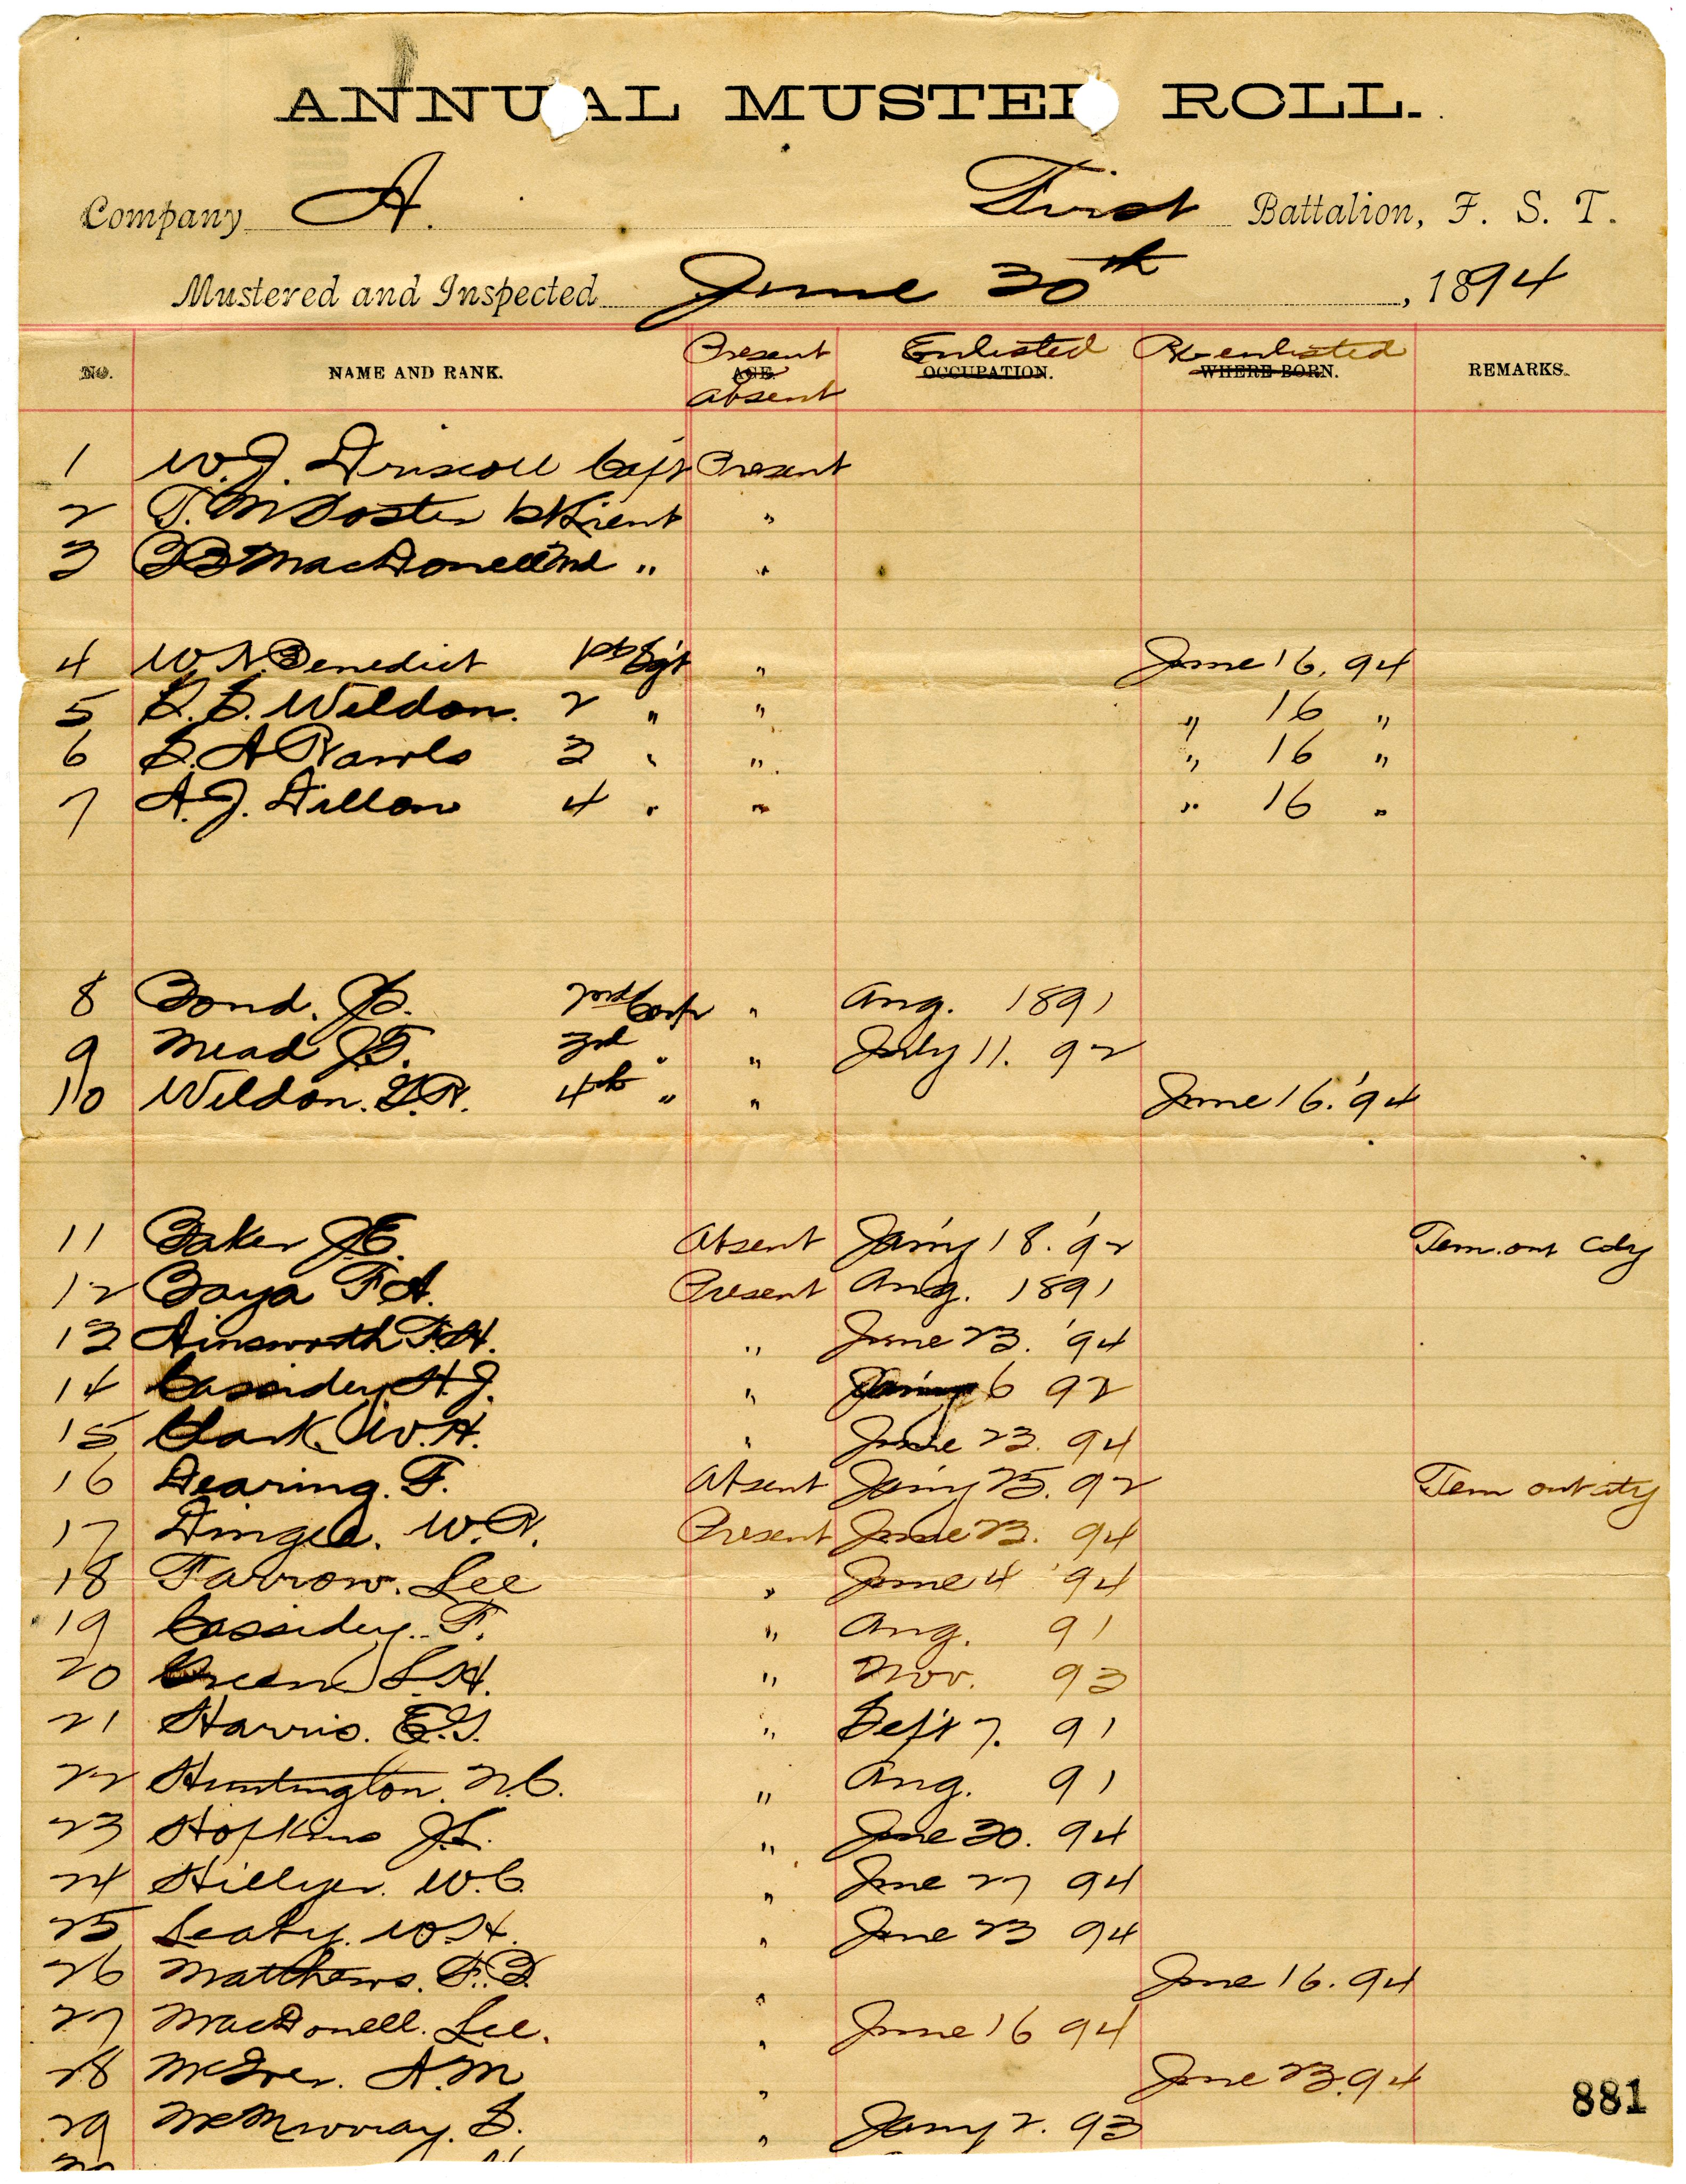 ANNUAL MUSTER ROLL.
Company A. First Battalion, F. S. T.
Mustered and Inspected June 30th, 1894
NO. NAME AND RANK. Present AGE. Absent Enlisted OCCUPATION. Re-enlisted WHERE BORN. REMARKS.
1 W.J. Driscoll Capt Present
2 T.M. Foster 1st Lieut "
3 MacDonell 2nd " "
4 W.N. Benedict 1st Sgt " June 16. 94
5 S.S. Weldon. 2 " " " 16 "
6 S.A Rawls 3 " " " 16 "
7 A.J. Dillon 4 " " " 16 "
8 Bond. 2nd Corp " Aug. 1891
9 Mead J.F. 3rd " " July 11. 92
10 Weldon. G.R. 4th " " June 16. '94
11 Baker J.E. Absent Jan'y 18. '92 Tem. out City
12 Baya F.A. Present Aug. 1891
13 Ainsworth F.H. " June 23. '94
14 Cassidey H.J. " Jan'y 6 92
15 Clark. W.H. " June 23. 94
16 Dearing. F. Absent Jan'y 25. 92 Tem out city
17 Dingee. W.R. Present June 23. 94
18 Farrow. Lee " June 4 '94
19 Cassidey. F. " Aug. 91
20 Green L.H. " Nov. 93
21 Harris. E.G. " Sep't 7. 91
22 Huntington. N.C. " Aug. 91
23 Hopkins J.L. " June 30. 94
24 Hillyer. W.C. " June 27 94
25 Leahy. W.H. " June 23 94
26 Matthews. F.B. " June 16. 94
27 MacDonell. Lee. " June 16 94
28 McIver. A.M " June 23. 94
29 McMurray. S. " Jany 2. 93
881